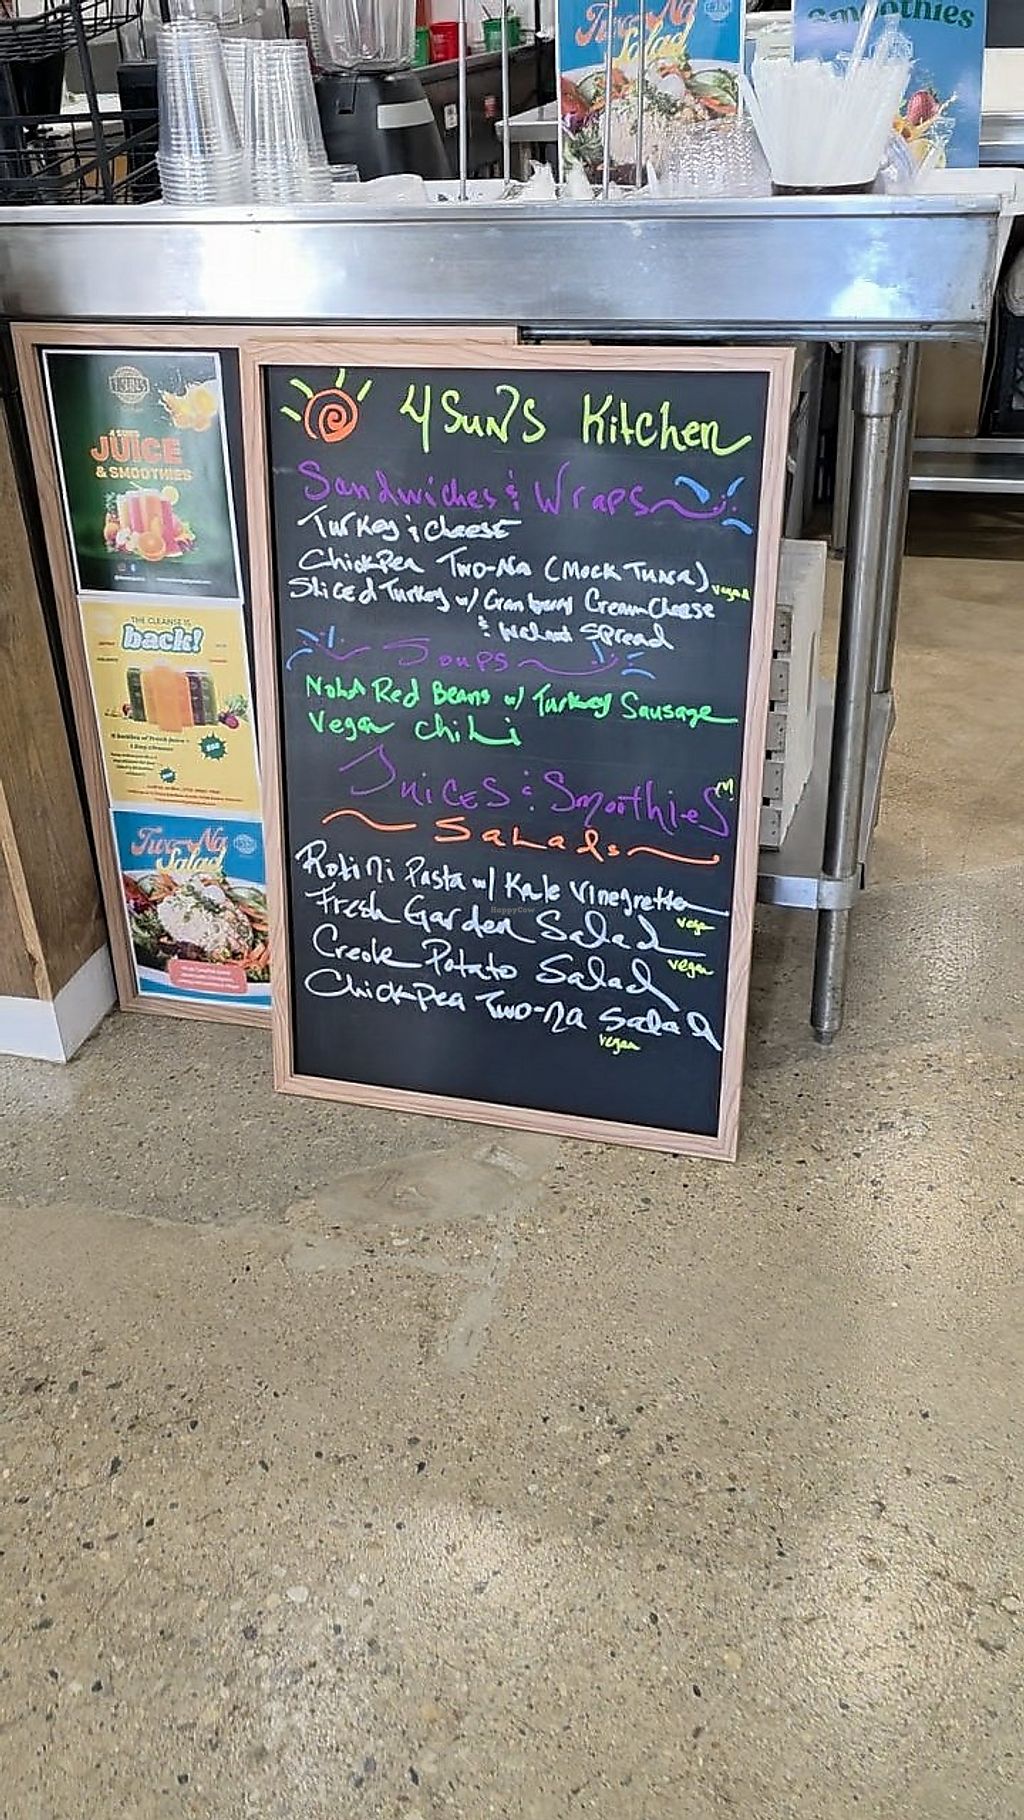 Two-Na
Salad
Smoothies
4 SUNS
JUICE
& SMOOTHIES
THE CLEANSE IS
back!
Two-Na
Salad
4 Sun's Kitchen
Sandwiches & Wraps
Turkey & Cheese
Chickpea Two-Na (Mock Tuna) vegan
Sliced Turkey w/ Cranberry Cream Cheese
& Walnut Spread
Soups
Nola Red Beans w/ Turkey Sausage
Vegan Chili
Juices & Smoothies
Salads
Rotini Pasta w/ Kale Vinegrette
vegan
Fresh Garden Salad
vegan
Creole Potato Salad
Chickpea Two-Na Salad
vegan
HappyCow